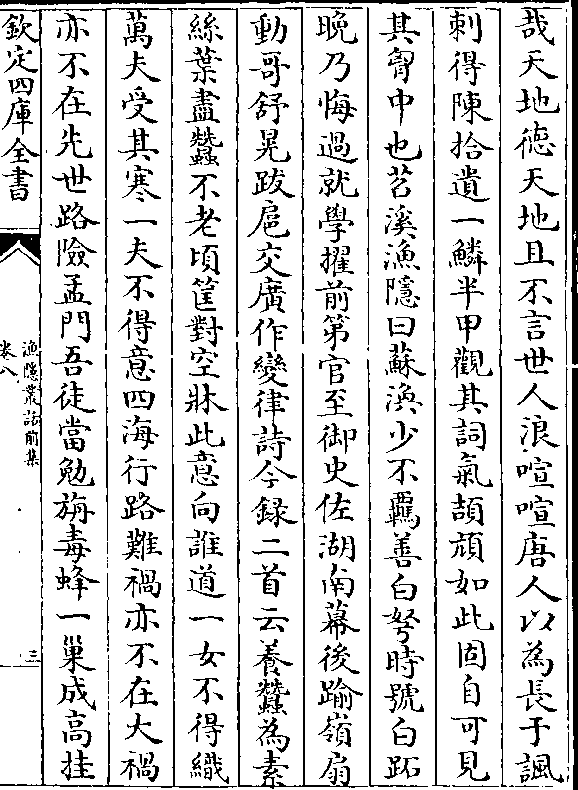 哉天地徳天地且不言世人浪喧喧唐人以為長于諷
刺得陳拾遺一鱗半甲觀其詞氣頡頏如此固自可見
其胷中也苕溪漁隠曰蘇渙少不羈善白弩時號白跖
晚乃悔過就學擢前第官至御史佐湖南幕後踰嶺扇
動哥舒晃跋扈交廣作變律詩今録二首云養蠶為素
絲葉盡蠶不老頃筐對空牀此意向誰道一女不得織
萬夫受其寒一夫不得意四海行路難禍亦不在大禍
亦不在先世路險孟門吾徒當勉旃毒蜂一巢成高挂
欽定四庫全書
漁隠叢話前集
卷八
三